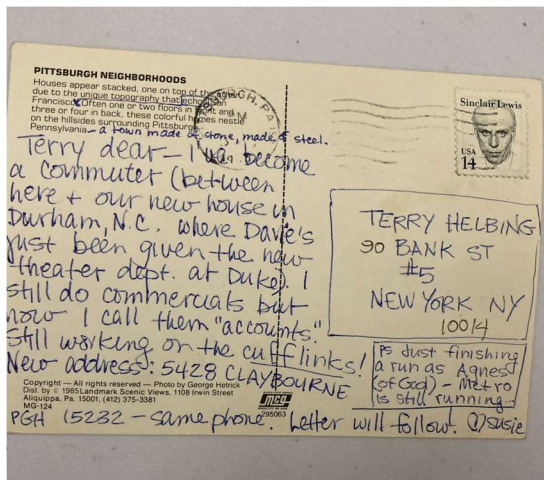 PITTSBURGH NEIGHBORHOODS
Houses appear stacked, one on top of the other
due to the unique topography that echoes San
Francisco. Often one or two floors in front and
three or four in back, these colorful homes nestle
on the hillsides surrounding Pittsburgh,
Pennsylvania – a town made of stone, made of steel.
Terry dear – I've become
a commuter (between
here + our new house in
Durham, N.C. where Dave's
just been given the new
theater dept. at Duke). I
still do commercials but
now I call them "accounts."
Still working on the cufflinks!
New address: 5428 CLAYBOURNE
Copyright — All rights reserved — Photo by George Hetrick
Dist. by © 1985 Landmark Scenic Views, 1108 Irwin Street
Aliquippa, Pa. 15001, (412) 375-3381
MG-124
mcg
295063
PGH 15232 – same phone. Letter will follow! Susie
PA
Sinclair Lewis
USA
14
TERRY HELBING
90 BANK ST
#5
NEW YORK NY
10014
PS Just finishing
a run as Agnes
(of God) – Metro
is still running...